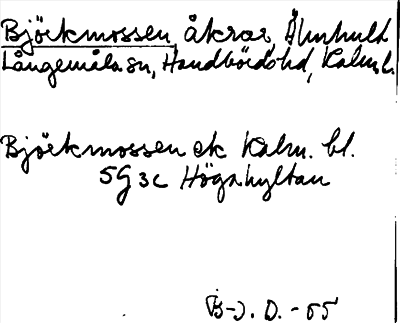 Björkmossen, åkrar, Älmhult
Långemåla sn, Handbörds hd, Kalm. l.
Björkmossen ek Kalm. bl.
5G3c Högahyltan
B-J. D. -55